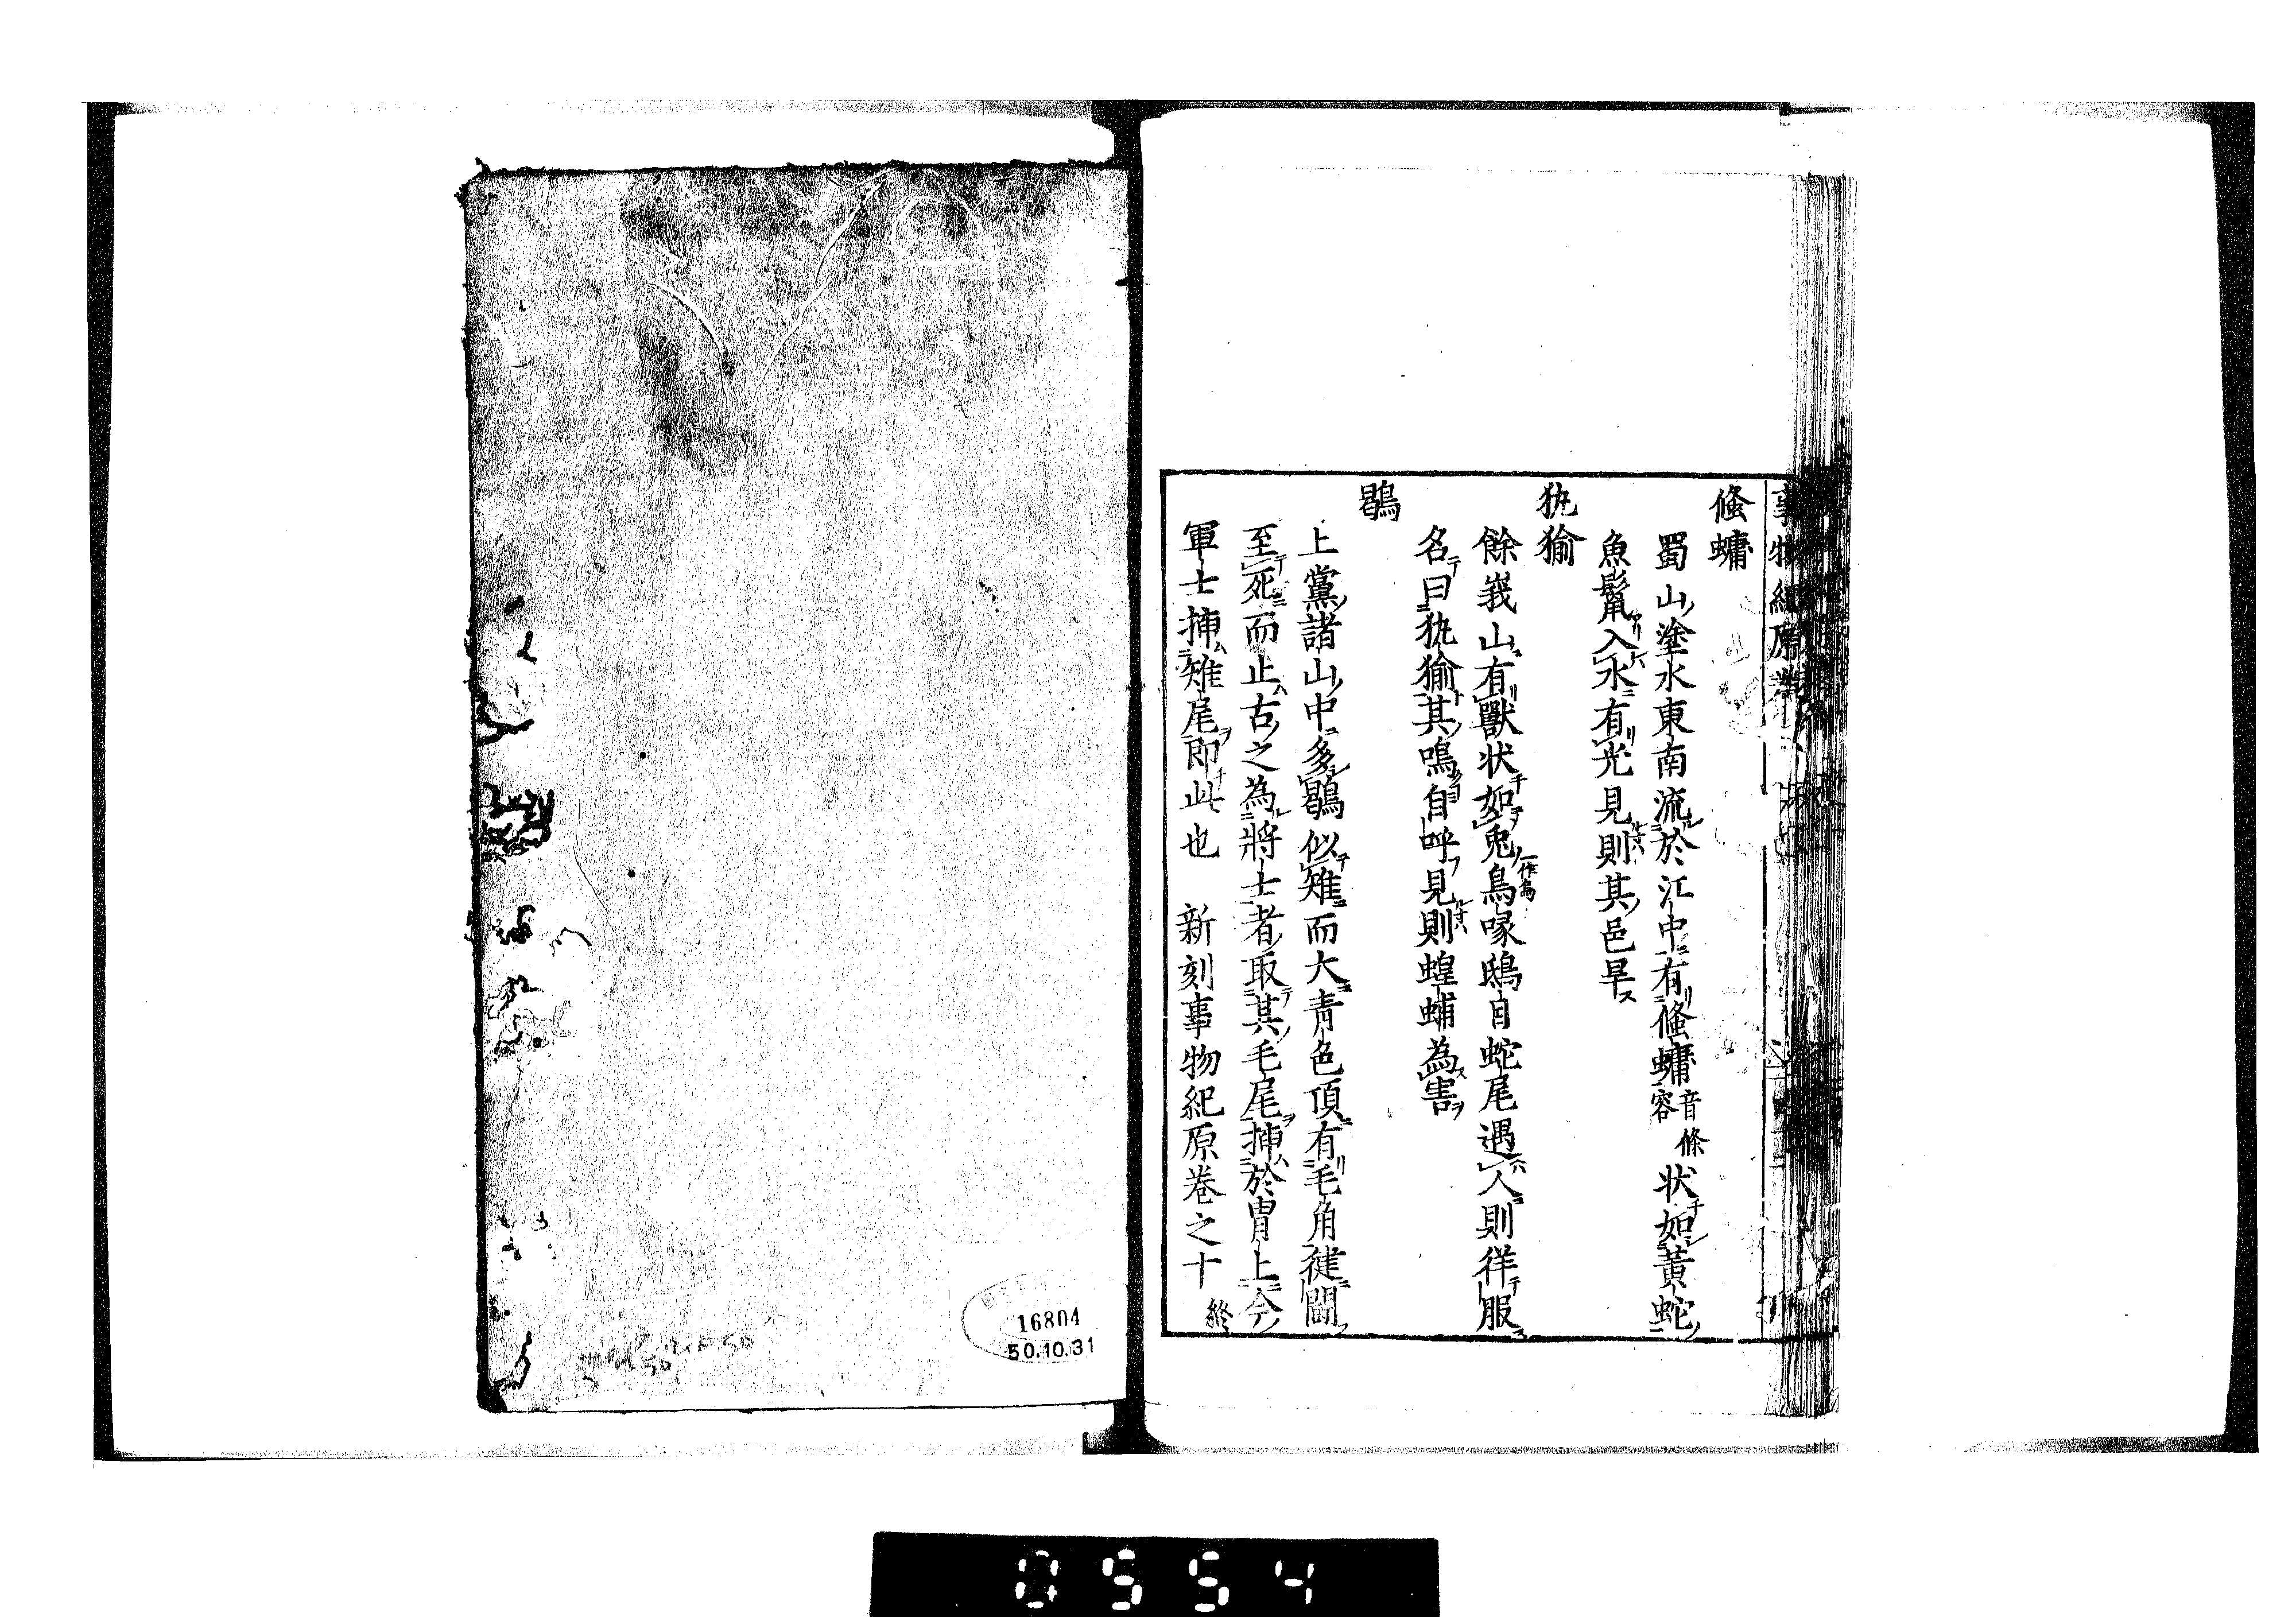 事物紀原
䖺𧔥
蜀山塗水東南流於江中有䖺𧔥音條容状如黃蛇
魚鬣入水有光見則其邑旱
犰狳
餘峩山有獸状如兎一作為鳥喙鴟目蛇尾遇人則徉服
名曰犰狳其鳴自呼見則蝗蜅為害
鶡
上黨諸山中多鶡似雉而大青色頂有毛角健鬪
至死而止古之為將士者取其毛尾揷於冑上今
軍士揷雉尾即此也　新刻事物紀原卷之十終
16804
50.10.31
0554